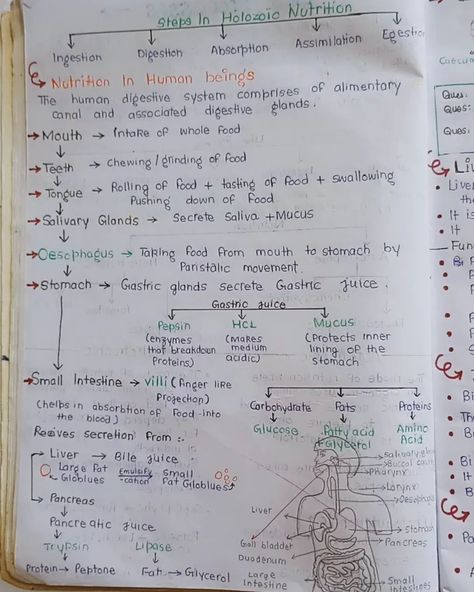 Steps In Holozoic Nutrition
Ingestion Digestion Absorption Assimilation Egestion
Nutrition In Human beings
The human digestive system comprises of alimentary
canal and associated digestive glands.
→ Mouth → Intake of whole food
→ Teeth → chewing/grinding of food
→ Tongue → Rolling of food + tasting of food + swallowing
Pushing down of food
→ Salivary Glands → Secrete Saliva + Mucus
→ Oesophagus → Taking food from mouth to stomach by
Paristalic movement.
→ Stomach → Gastric glands secrete Gastric juice.
Gastric juice
Pepsin HCL Mucus
(enzymes (Makes (Protects inner
that breakdown medium lining of the
Proteins) acidic) stomach
→ Small Intestine → villi (finger like
Projection)
(helps in absorbtion of Food into
the blood)
Carbohydrate Fats Proteins
Glucose Fatty acid Amino
Glycerol Acid
Recives secretion from :-
→ Liver → Bile juice
Large Fat Emulsifi Small
Globlues -cation Fat Globlues
→ Pancreas
Pancreatic juice
Trypsin Lipase
Protein → Peptone Fat → Glycerol
Salivary gland
Buccal cavity
Pharynx
Larynx
Oesophagus
Liver
Stomach
Gall bladder
Pancreas
Duodenum
Large
Intestine
Small
Intestines
Caecum
Ques:
Ques:
Ques:
Liv
Liver
the
It is
It
Fun